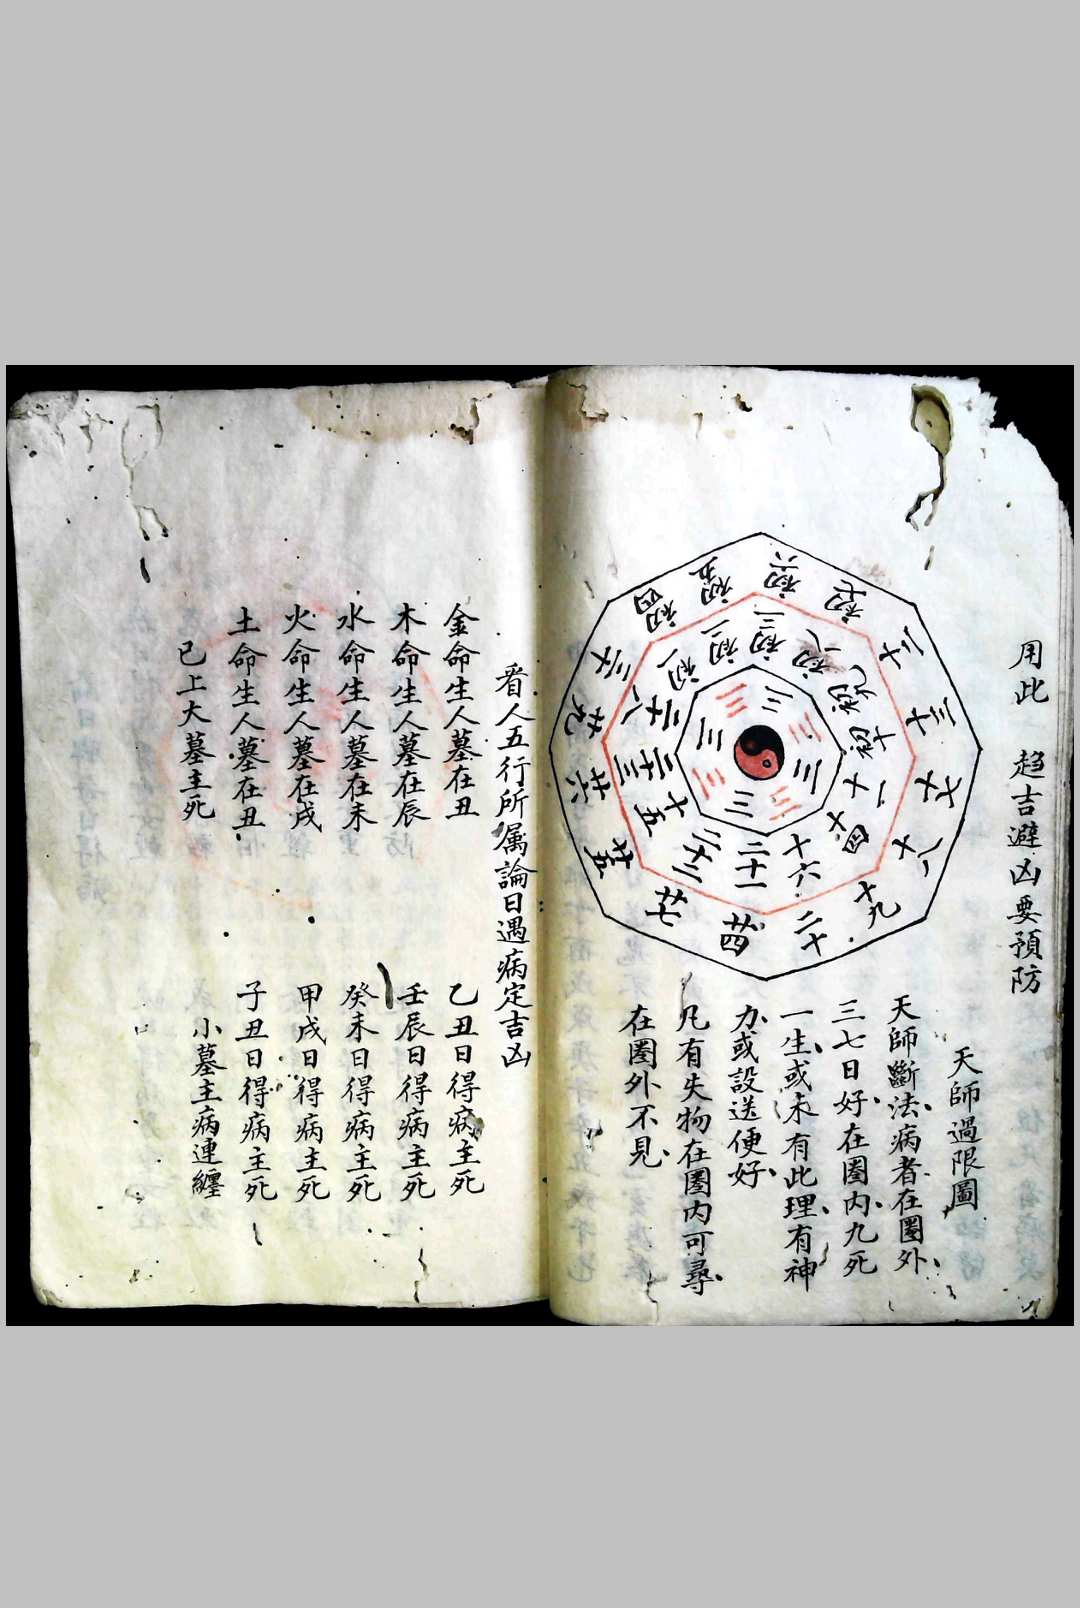 用此 趋吉避凶要預防
天師過限圖
天師斷法病者在圈外
三七日好在圈内九死
一生或未有此理有神
力或設送便好
凡有失物在圈内可尋
在圈外不見
初六
初五
初四
三十
廿九
廿六
廿五
廿七
廿四
二十
十九
十八
十七
十三
十二
初七
初三
初二
初一
二十八
二十三
十五
二十二
二十一
十六
十四
十一
初十
初九
初八
看人五行所属論日遇病定吉凶
金命生人墓在丑 乙丑日得病主死
木命生人墓在辰 壬辰日得病主死
水命生人墓在未 癸未日得病主死
火命生人墓在戌 甲戌日得病主死
土命生人墓在丑 子丑日得病主死
已上大墓主死 小墓主病連纏